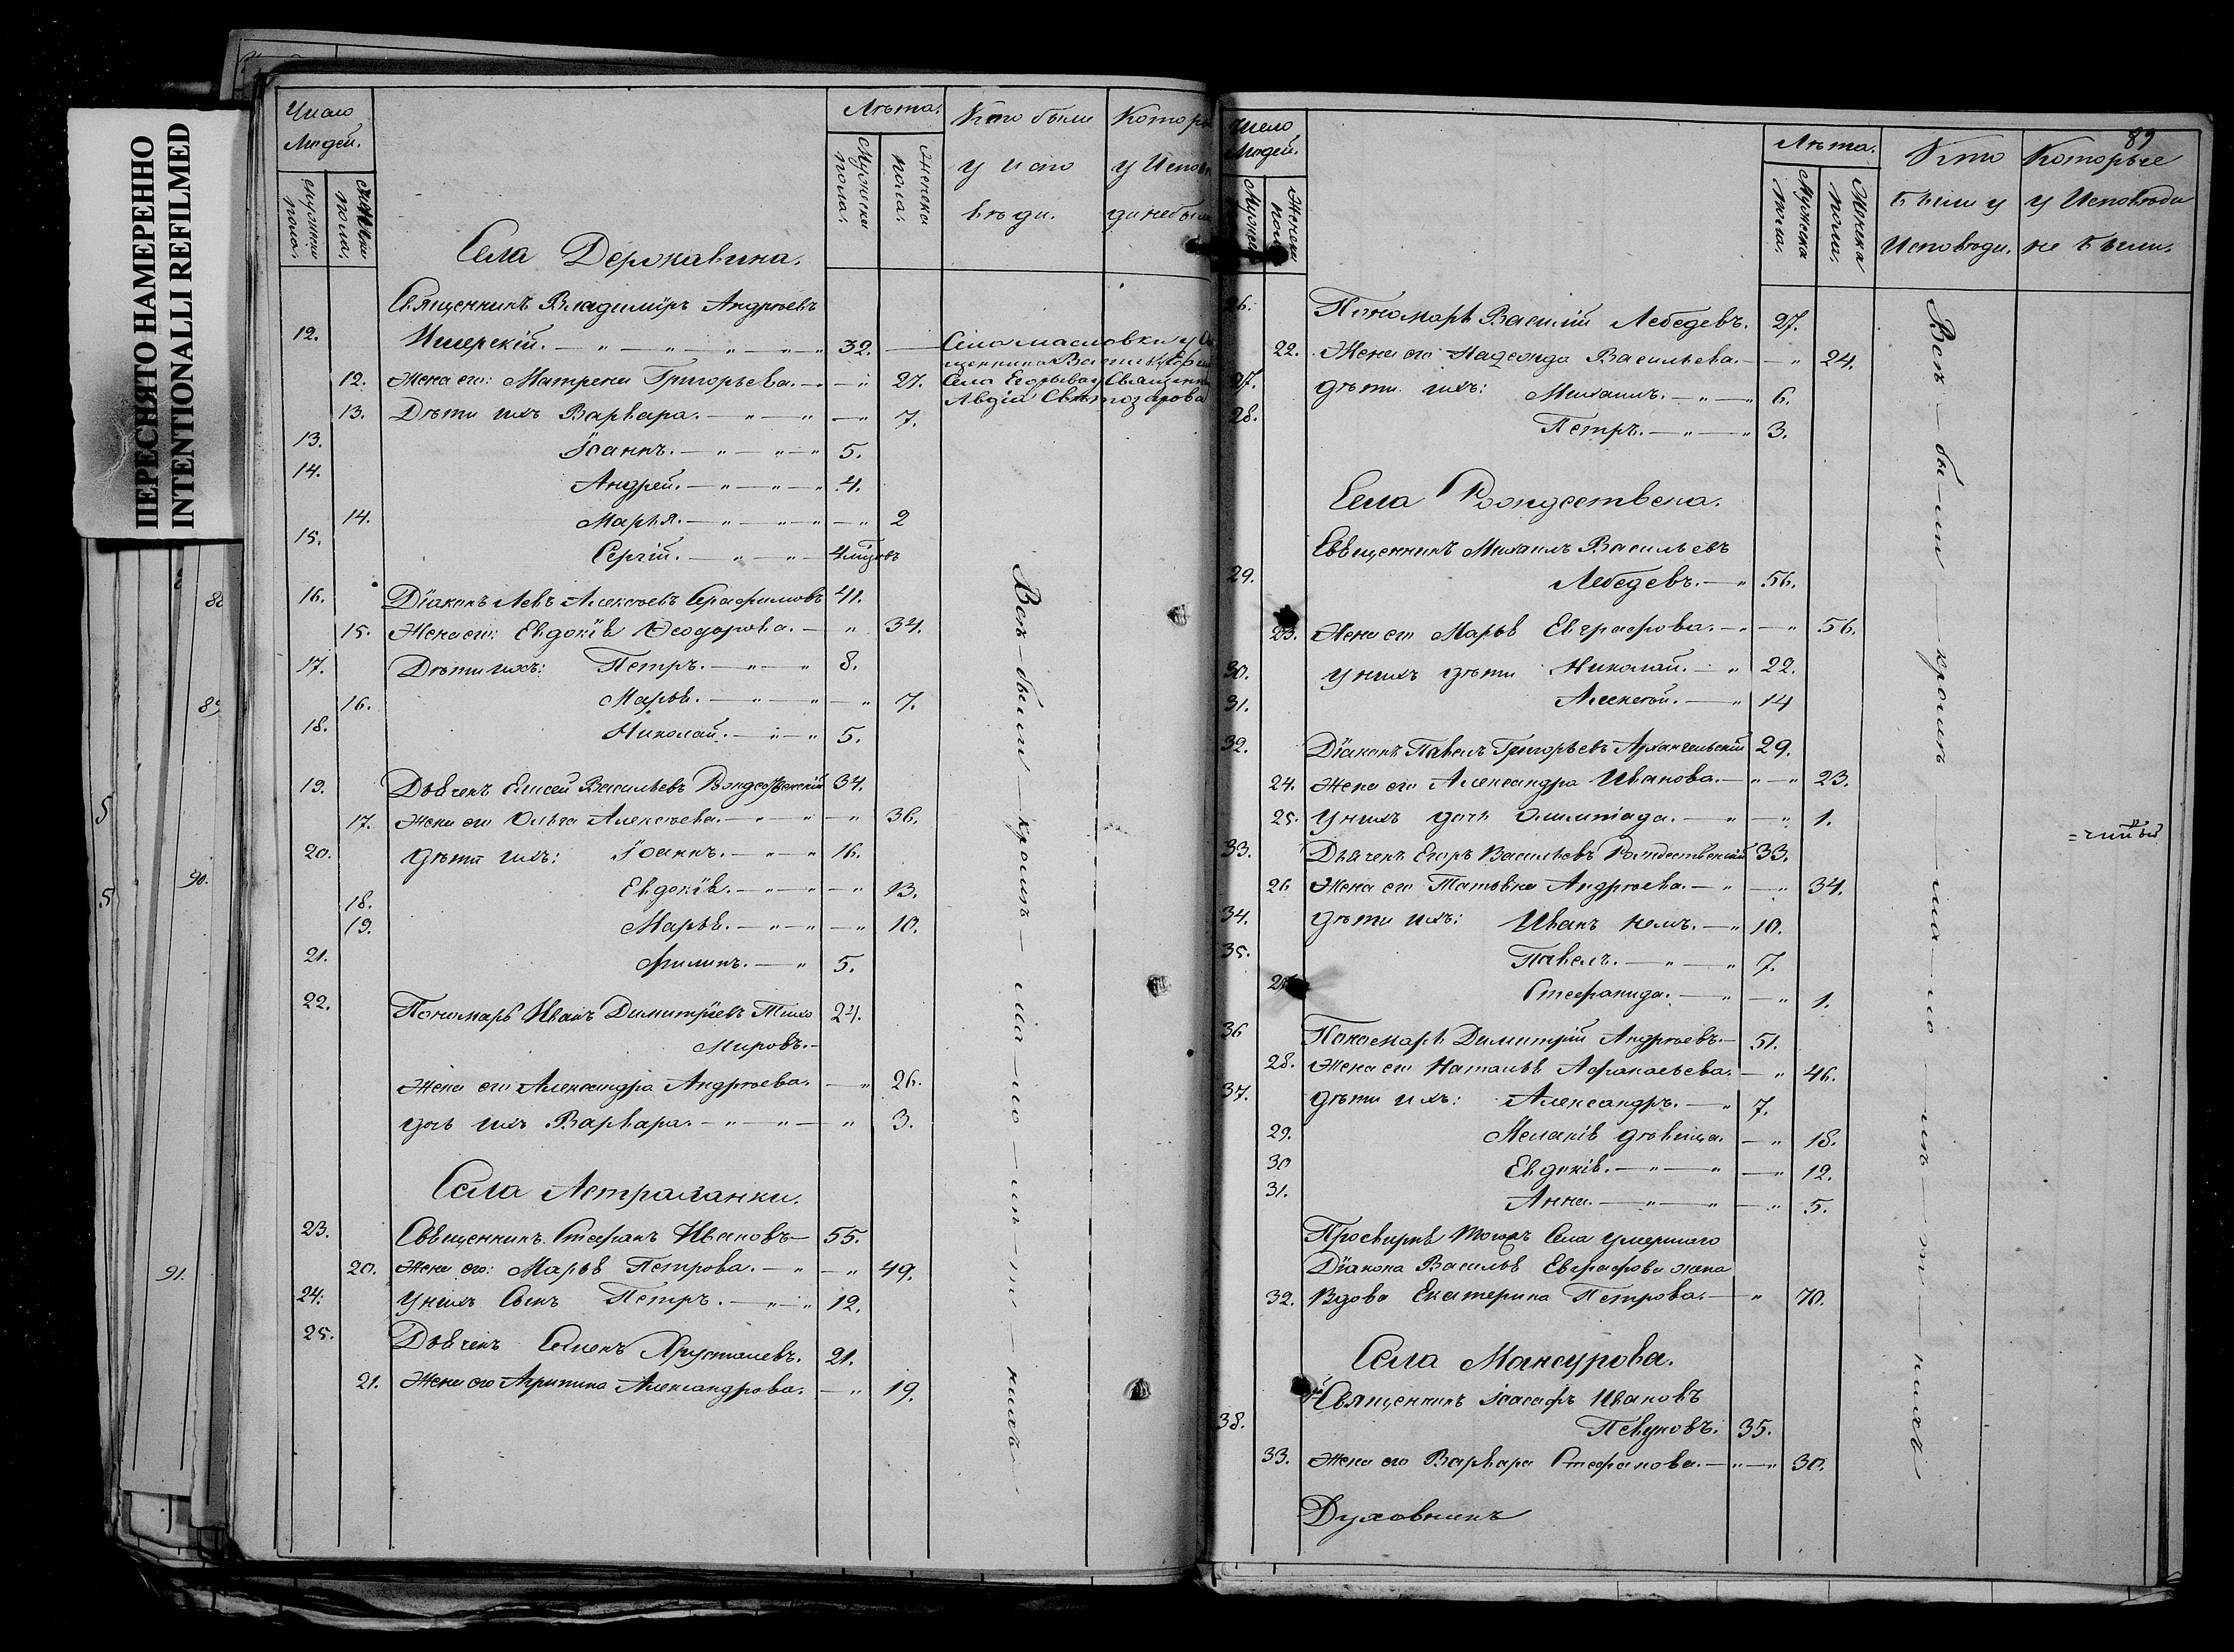 ПЕРЕСНЯТО НАМЕРЕННО
INTENTIONALLI REFILMED
Число Людей.
мужеска пола.
пола.
Лѣта.
Мужеска пола.
Женска пола.
Кто были у испо вѣди.
Которые у Испов ди небыли
Села Державина.
Священникъ Владимїръ Андреевъ
12. 32.
12. Жена его: Матрена Григорьева. 27. Села Егорьева у Священника
13. Дѣти ихъ Варвара. 7.
13. Іоаннъ. 5.
14. Андрей. 4.
14. Марья. 2
15. Сергій.
16. Діаконъ Левъ Алексѣевъ Серафимовъ 41.
15. Жена его: Евдокія Ѳеодорова. 34.
17. Дѣти ихъ: Петръ. 8.
16. Марья. 7.
18. Николай. 5.
19. Дьячекъ Елисей Васильевъ Рождественскій 34.
17. Жена его Ольга Алексѣева. 36.
20. дѣти ихъ: Іоаннъ. 16.
18. Евдокія. 13.
19. Марья. 10.
21. Филипъ. 5.
22. Пономарь Иванъ Димитріевъ Тихо 24.
Мировъ.
Жена его Александра Андреева. 26.
дочь ихъ Варвара. 3.
Села Астраханки.
23. Священникъ Стефанъ Ивановъ 55.
20. Жена его: Марья Петрова. 49.
24. У нихъ Сынъ Петръ. 12.
25. Дьячекъ Семенъ Хрусталевъ. 21.
21. Жена его Агрипина Александрова. 19.
Всѣ были кромѣ ма ло лѣ т нихъ
89
Число Людей.
Мужеска
Женска пола
Лѣта.
Мужеска пола.
Женска пола.
Кто были у Исповѣди.
Которые у Исповѣди не были.
26. Пономарь Василій Лебедевъ. 27.
22. Жена его Надежда Васильева. 24.
27. дѣти ихъ: Михаилъ. 6.
28. Петръ. 3.
Села Рождествена.
Священникъ Михаилъ Васильевъ
29. Лебедевъ. 56.
23. Жена его Марья Евграфова. 56.
30. у нихъ дѣти Николай. 22.
31. Алексѣй. 14
32. Діаконъ Павелъ Григорьевъ Архангельскій 29.
24. Жена его Александра Иванова. 23.
25. У нихъ дочь Олимпіада. 1.
33. Дьячекъ Егоръ Васильевъ Рождественскій 33.
26 Жена его Татьяна Андреева. 34.
34. дѣти ихъ: Иванъ немъ. 10.
35. Павелъ. 7.
Стефанида. 1.
36 Пономарь Димитрій Андреевъ. 51.
28. Жена его Наталья Афанасьева. 46.
37. дѣти ихъ: Александръ. 7.
29. Меланія дѣвица. 18.
30 Евдокія. 12.
31. Анна. 5.
Просвирня тогожъ Села умершаго
Діакона Василья Евграфова жена
32. Вдова Екатерина Петрова. 70.
Села Мансурова.
Священникъ Іоасафъ Ивановъ
38. Певуновъ. 35.
33. Жена его Варвара Стефанова. 30.
Духовникъ
Всѣ бы ли кромѣ ма ло лѣ т нихъ